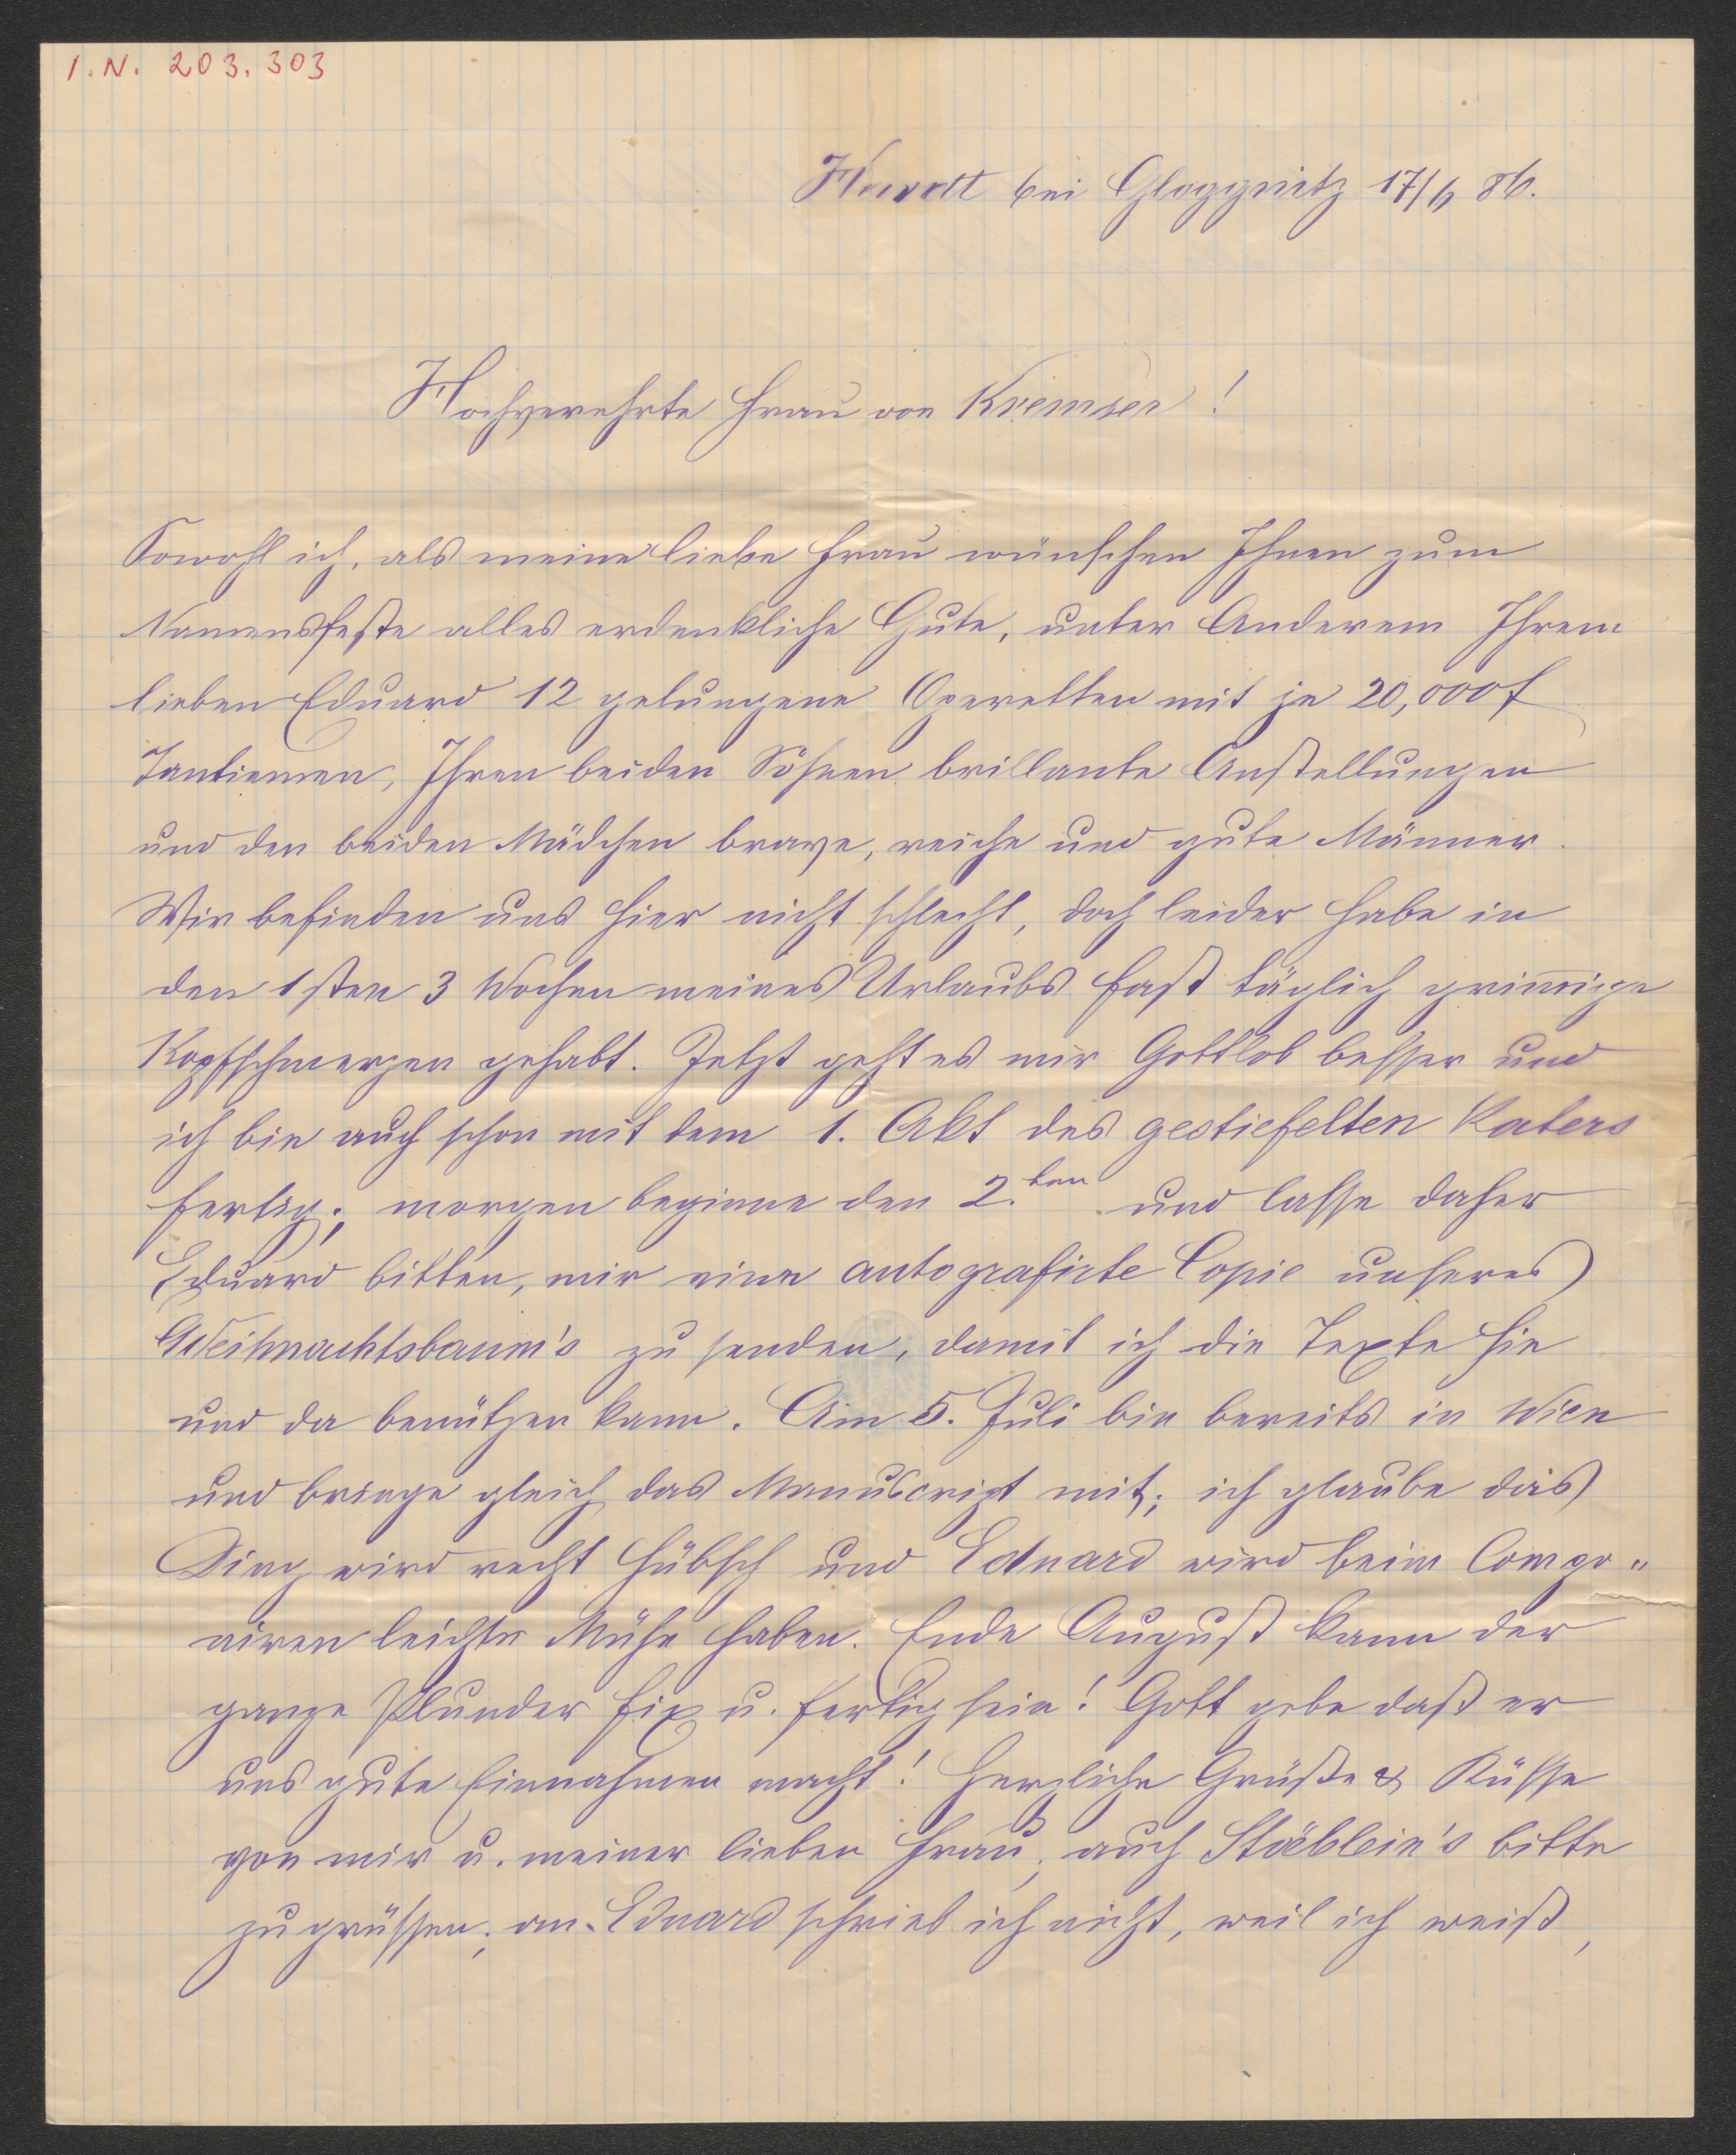 I.N. 203.303
bei Gloggnitz 17/6 86.
Hochverehrte Frau von Kremser!
Sowohl ich, als meine liebe Frau wünschen Ihnen zum
Namensfeste alles erdenkliche Gute, unter Anderem Ihrem
lieben Eduard 12 gelungene Operetten mit je 20,000 f
Tantiemen, Ihren beiden Söhnen brillante Anstellungen
und den beiden Mädchen brave, reiche und gute Männer.
Wir befinden uns hier nicht schlecht, doch leider habe in
den 1sten 3 Wochen meines Urlaubs fast täglich grim̄ige
Kopfschmerzen gehabt. Jetzt geht es mir Gottlob besser und
ich bin auch schon mit dem 1. Akt des gestiefelten Katers
fertig; morgen beginne den 2.ten und lasse daher
Eduard bitten, mir eine autografirte Copie unseres
Weihnachtsbaum's zu senden, damit ich die Texte hie
und da benützen kann. Am 5. Juli bin bereits in Wien
und bringe gleich das Manuscript mit; ich glaube das
Ding wird recht hübsch und Eduard wird beim Compo"
niren leichte Mühe haben. Ende August kann der
ganze Plunder fix u. fertig sein! Gott gebe daß er
uns gute Einnahmen macht! Herzliche Grüße & Küsse
von mir u. meiner lieben Frau; auch Stäblein's bitte
zu grüssen; an Eduard schrieb ich nicht, weil ich weiß,